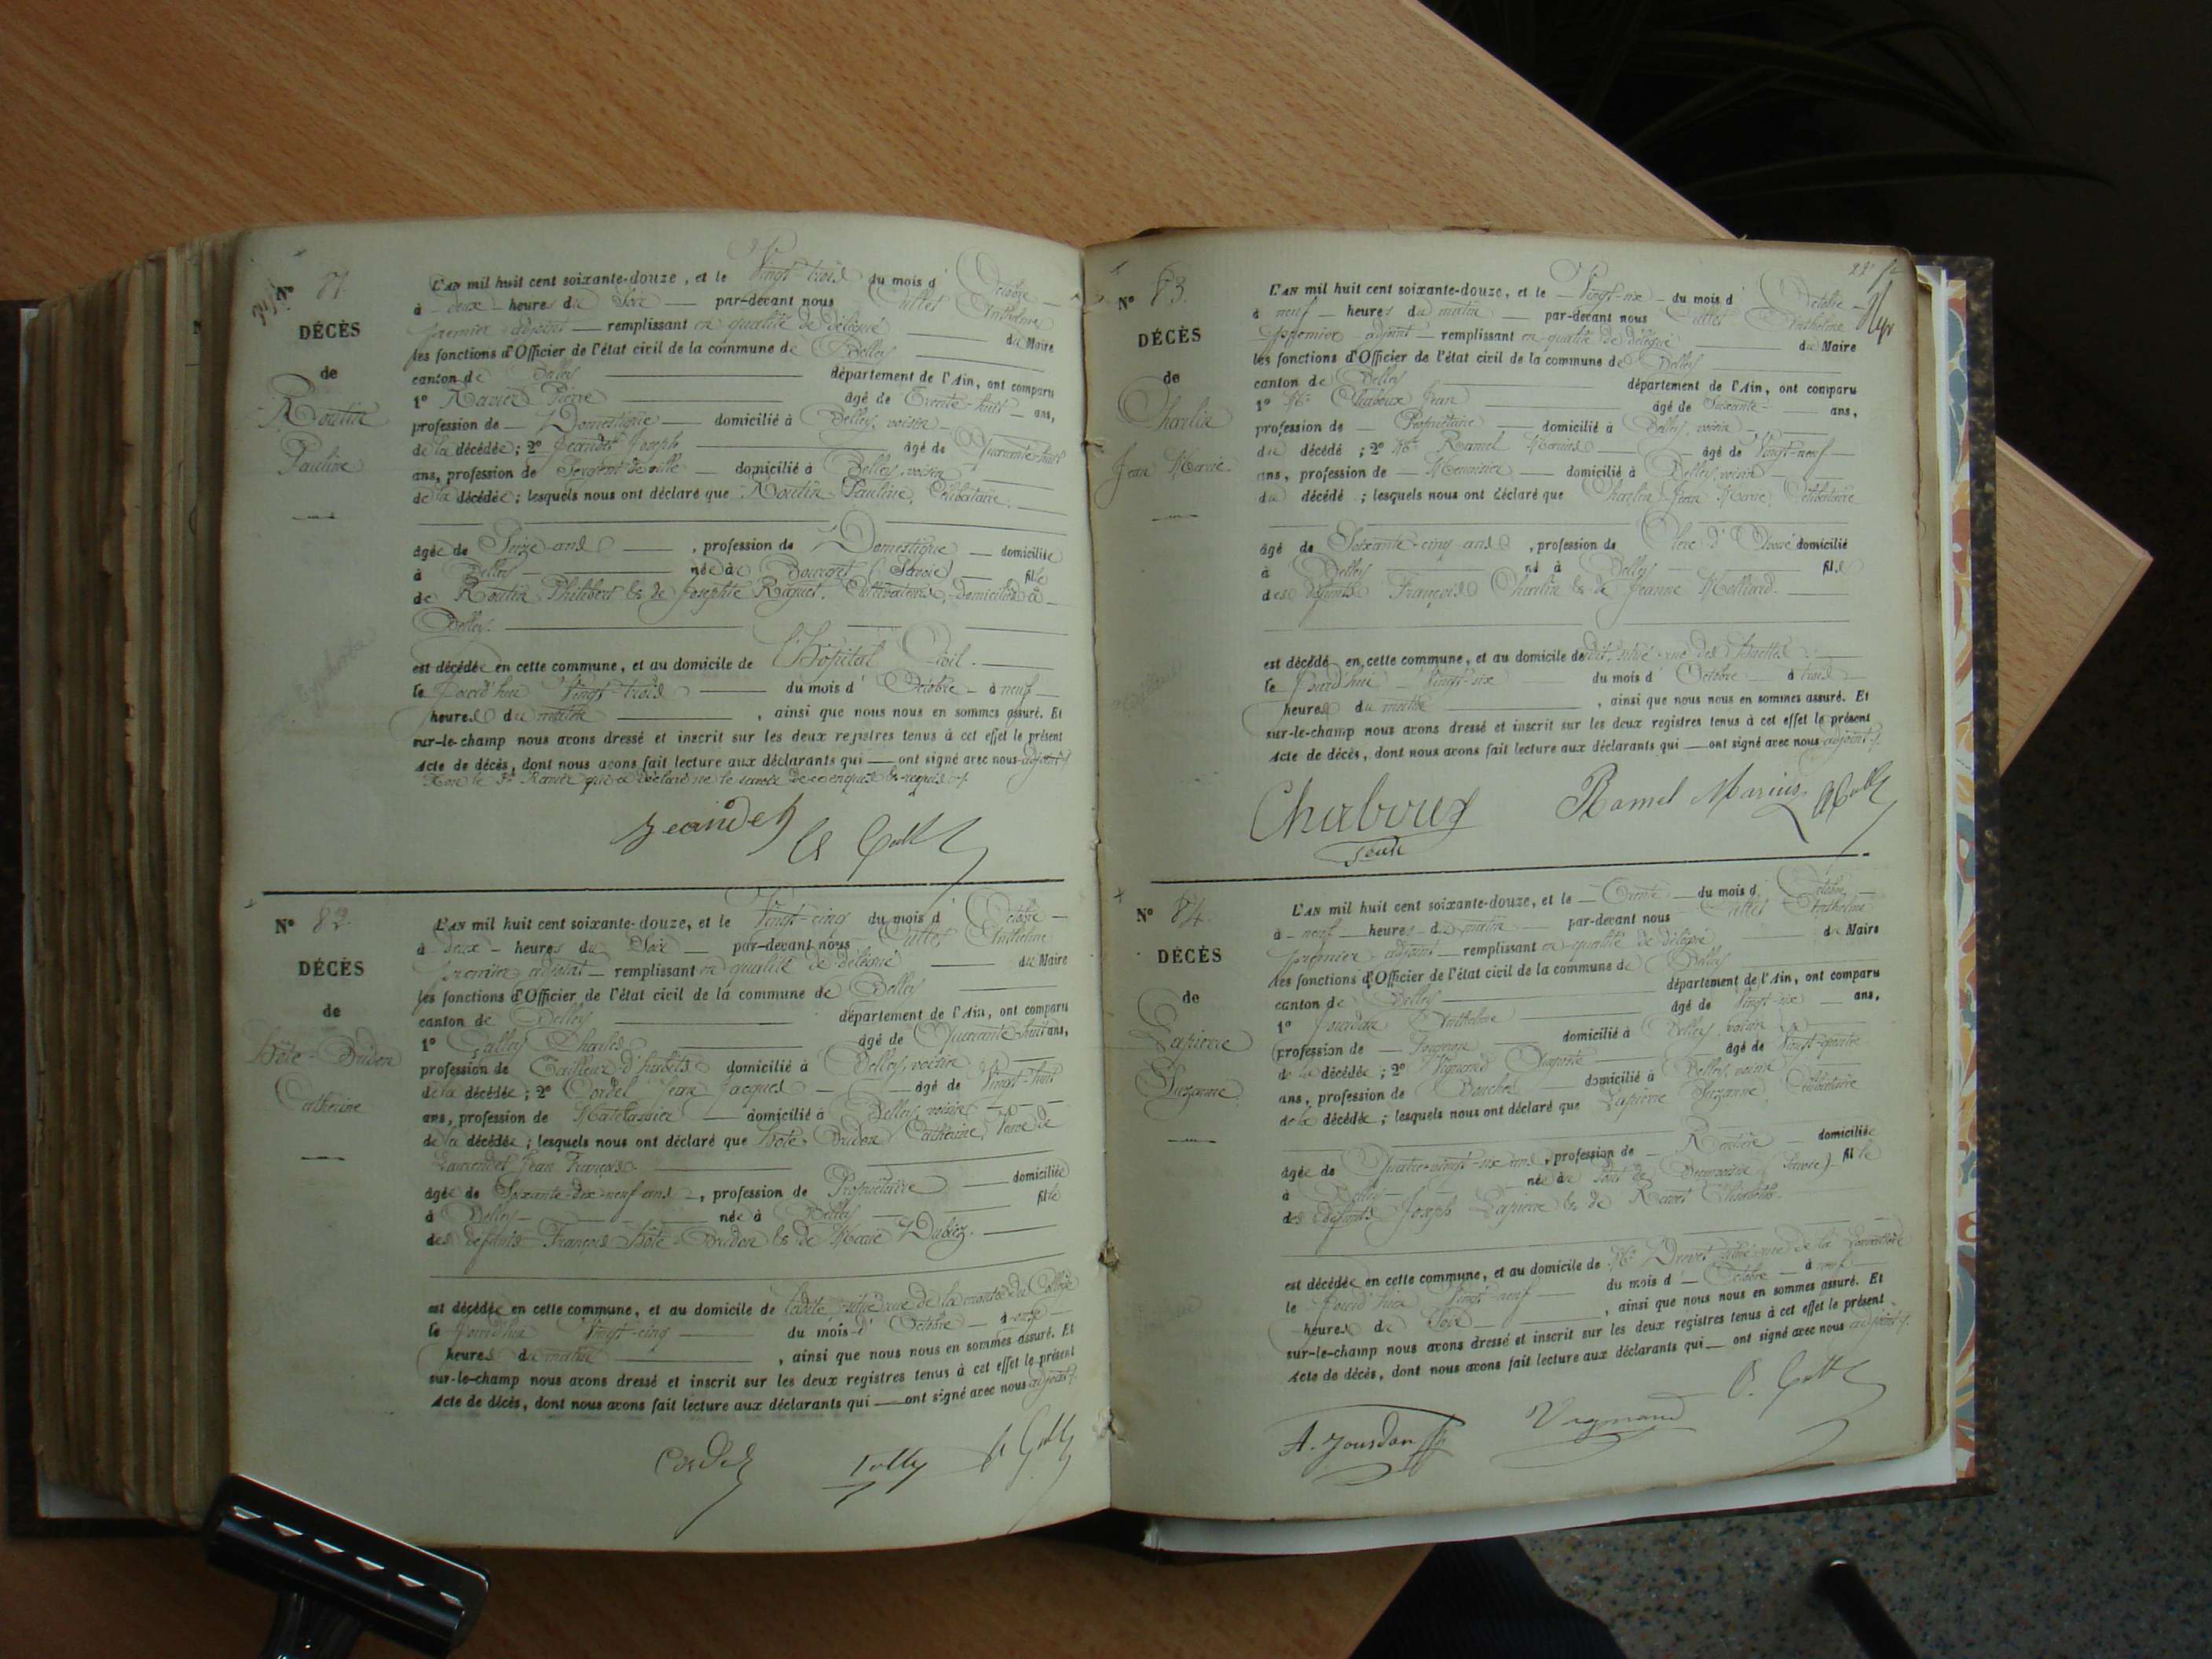 N° 81.
DÉCÈS
de
Routin
Pauline
L'AN mil huit cent soixante-douze, et le Vingt-trois du mois d'Octobre
à deux heures du Soir par-devant nous Cullet Anthelme
premier adjoint remplissant en qualité de délégué du Maire
les fonctions d'Officier de l'état civil de la commune de Belley
canton de Belley département de l'Ain, ont comparu
1° Ravier Pierre âgé de Trente-huit ans,
profession de Domestique domicilié à Belley, voisin
de la décédée; 2° Jeandet Joseph âgé de Quarante-huit
ans, profession de Sergent de ville domicilié à Belley, voisin
de la décédée; lesquels nous ont déclaré que Routin Pauline, Célibataire.
âgée de Seize ans, profession de Domestique domiciliée
à Belley née à Bourget (Savoie) fille
de Routin Philibert & de Josephte Raguet, Cultivateurs, domiciliés à
Belley.
est décédée en cette commune, et au domicile de l'Hôpital Civil.
le Jourd'hui Vingt-trois du mois d'Octobre à neuf
heures du matin, ainsi que nous nous en sommes assuré. Et
sur-le-champ nous avons dressé et inscrit sur les deux registres tenus à cet effet le présent
Acte de décès, dont nous avons fait lecture aux déclarants qui ont signé avec nous adjoint
Hors le Sr Ravier qui a déclaré ne le savoir de ce enquis & requis
Jeandet
N° 82.
DÉCÈS
de
Hôte-Bridon
Catherine
L'AN mil huit cent soixante-douze, et le Vingt-cinq du mois d'Octobre
à deux heures du Soir par-devant nous Cullet Anthelme
premier adjoint remplissant en qualité de délégué du Maire
les fonctions d'Officier de l'état civil de la commune de Belley
canton de Belley département de l'Ain, ont comparu
1° Charles âgé de Quarante-huit ans,
profession de Tailleur d'habits domicilié à Belley, voisin
de la décédée; 2° Cordel Jean Jacques âgé de Vingt-huit
ans, profession de Matelassier domicilié à Belley, voisin
de la décédée; lesquels nous ont déclaré que Hôte-Bridon Catherine, Veuve de
Jean François.
âgée de Soixante-dix-neuf ans, profession de Propriétaire domiciliée
à Belley née à Belley fille
des défunts François Hôte-Bridon & de Marie Dubiez.
est décédée en cette commune, et au domicile de ladite situé rue de la montée du Collège
le Jourd'hui Vingt-cinq du mois d'Octobre à onze
heures du matin, ainsi que nous nous en sommes assuré. Et
sur-le-champ nous avons dressé et inscrit sur les deux registres tenus à cet effet le présent
Acte de décès, dont nous avons fait lecture aux déclarants qui ont signé avec nous adjoint
Cordel
N° 83.
DÉCÈS
de
Charlin
Jean Marie.
L'AN mil huit cent soixante-douze, et le Vingt-six du mois d'Octobre
à neuf heures du matin par-devant nous Cullet Anthelme
premier adjoint remplissant en qualité de délégué du Maire
les fonctions d'Officier de l'état civil de la commune de Belley
canton de Belley département de l'Ain, ont comparu
1° Mr Chaboux Jean âgé de Soixante ans,
profession de Propriétaire domicilié à Belley, voisin
du décédé; 2° Mr Ramel Marius âgé de Vingt-neuf
ans, profession de Menuisier domicilié à Belley, voisin
du décédé; lesquels nous ont déclaré que Charlin Jean Marie, Célibataire
âgé de Soixante-cinq ans, profession de Clerc d'Avoué domicilié
à Belley né à Belley fils
des défunts François Charlin & de Jeanne Molliard.
est décédé en cette commune, et au domicile dudit, situé rue des
le Jourd'hui Vingt-six du mois d'Octobre à trois
heures du matin, ainsi que nous nous en sommes assuré. Et
sur-le-champ nous avons dressé et inscrit sur les deux registres tenus à cet effet le présent
Acte de décès, dont nous avons fait lecture aux déclarants qui ont signé avec nous adjoint
Chaboux Ramel Marius
Jean
N° 84.
DÉCÈS
de
Lapierre
Suzanne.
L'AN mil huit cent soixante-douze, et le Trente du mois d'Octobre
à neuf heures du matin par-devant nous Cullet Anthelme
premier adjoint remplissant en qualité de délégué du Maire
les fonctions d'Officier de l'état civil de la commune de Belley
canton de Belley département de l'Ain, ont comparu
1° Jourdan Anthelme âgé de Vingt-six ans,
profession de domicilié à Belley, voisin
de la décédée; 2° Vignand Auguste âgé de Vingt-quatre
ans, profession de Boucher domicilié à Belley, voisin
de la décédée; lesquels nous ont déclaré que Lapierre Suzanne, Célibataire
âgée de Quatre-vingt-six ans, profession de Rentière domiciliée
à Belley née à Pont de Beauvoisin (Savoie) fille
des défunts Joseph Lapierre & de Ravet
est décédée en cette commune, et au domicile de Mr Drevet situé rue de la
le Jourd'hui Vingt-neuf du mois d'Octobre à neuf
heures du Soir, ainsi que nous nous en sommes assuré. Et
sur-le-champ nous avons dressé et inscrit sur les deux registres tenus à cet effet le présent
Acte de décès, dont nous avons fait lecture aux déclarants qui ont signé avec nous adjoint
A. Jourdan Vignand